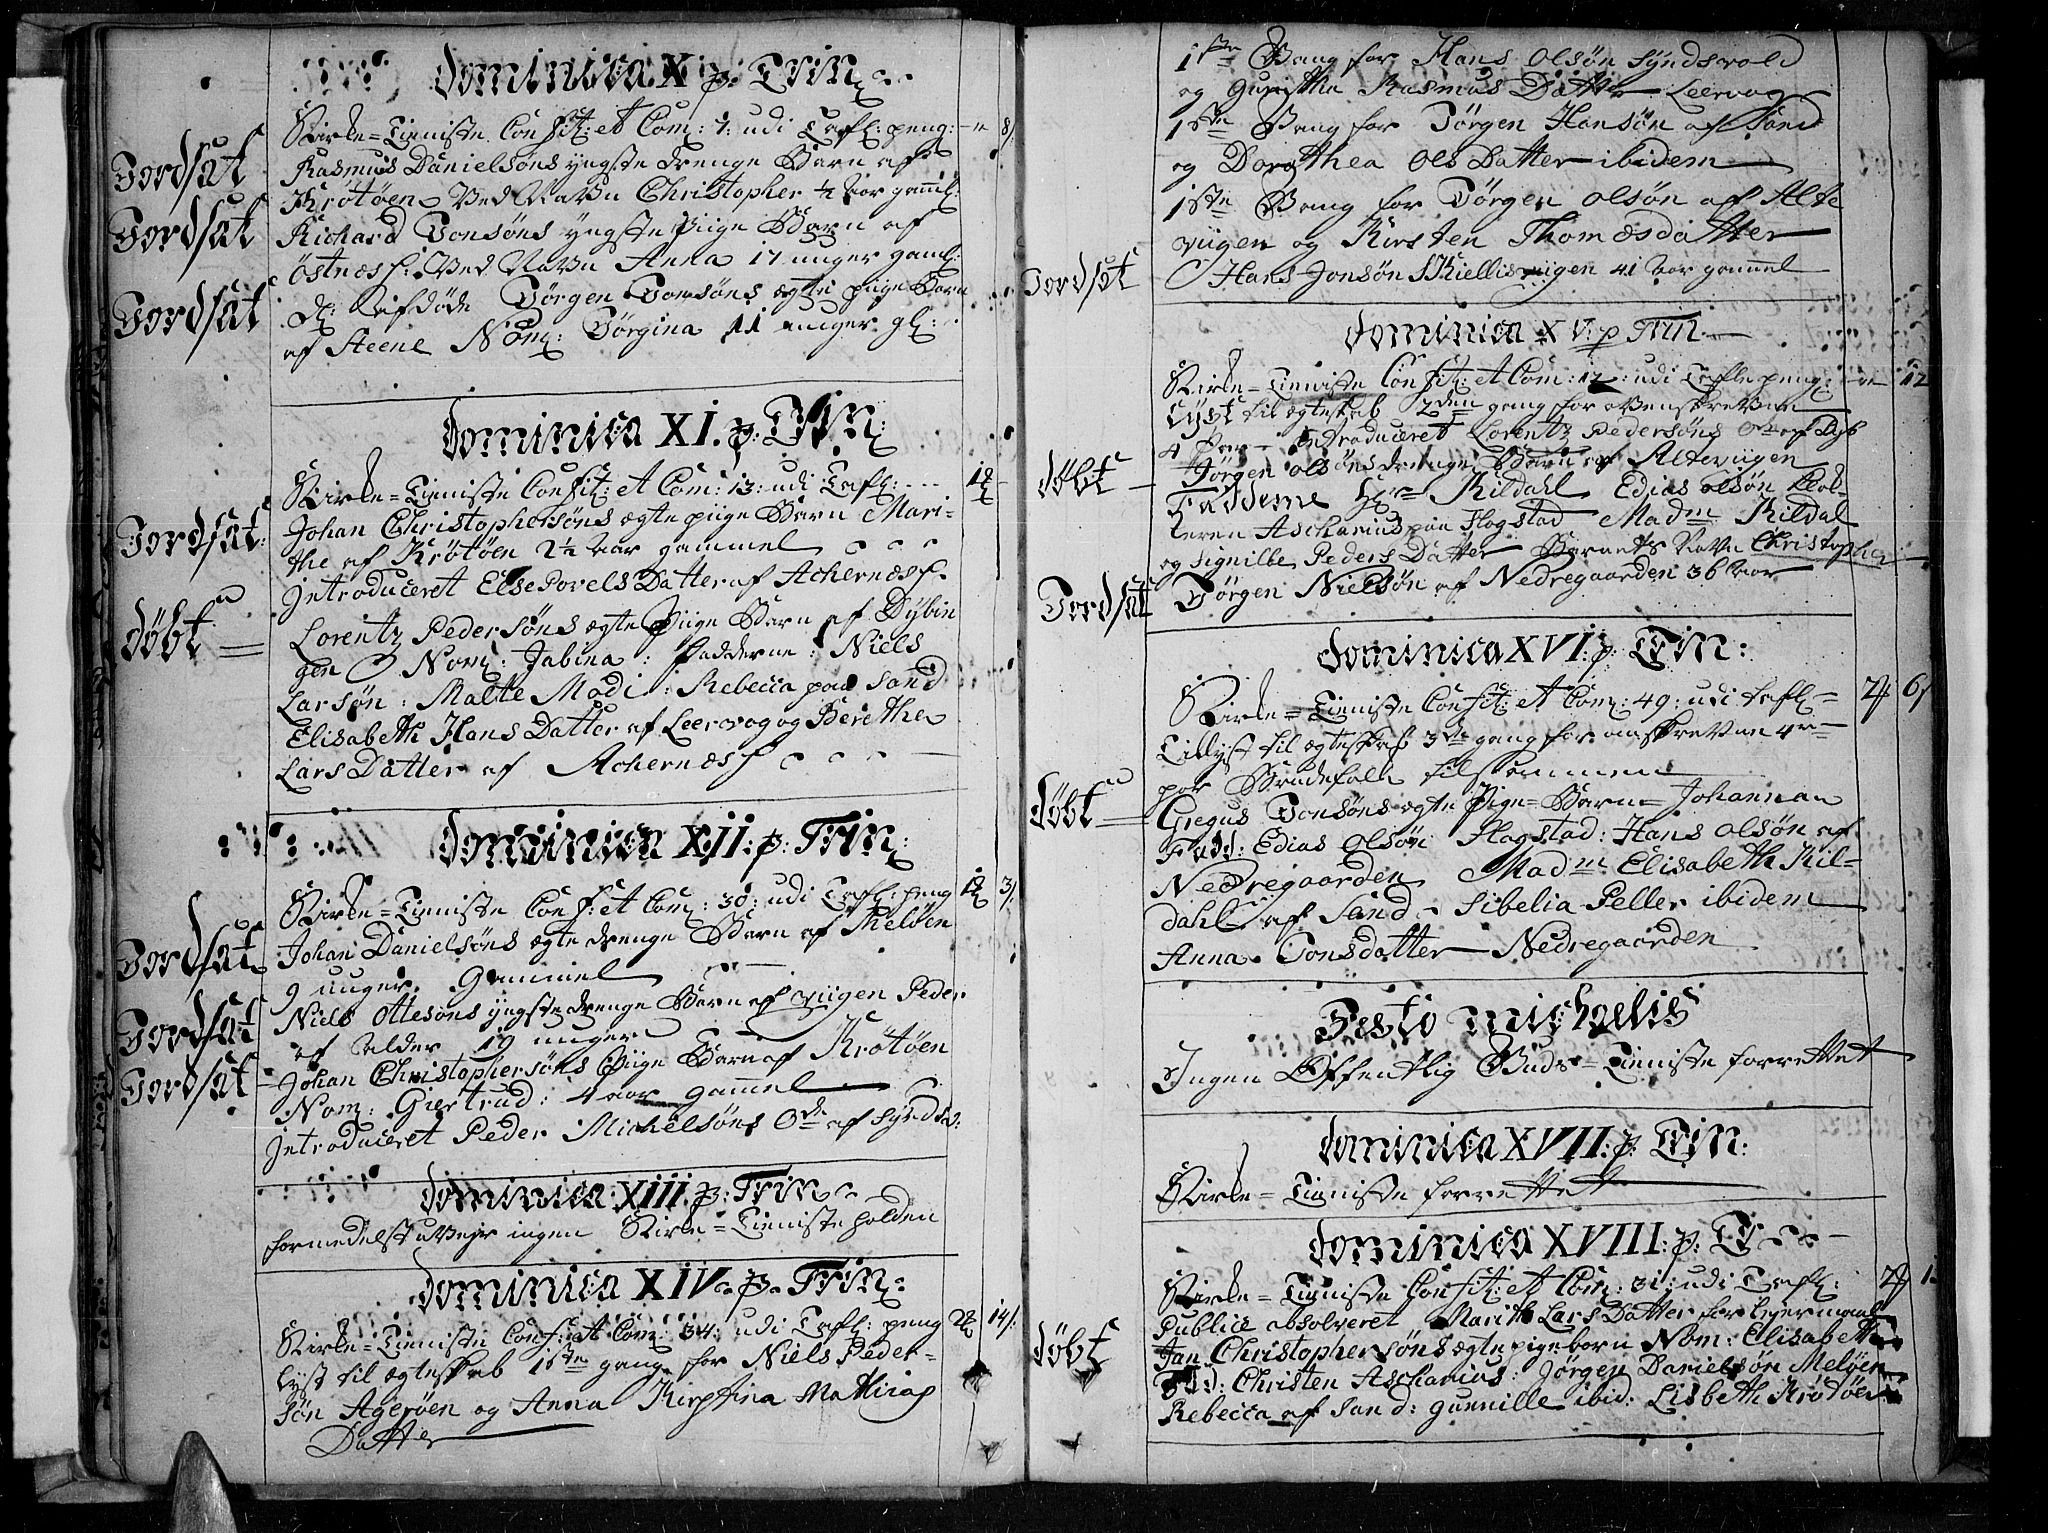 Dominica X p. Trin:
Kirke=Tieniste Confit: et Com: 7: udi Tafl: peng: 8/.
Jordsat Rasmus Danielsøns yngste drenge Barn af
Krøtøen Ved Navn Christopher ½ aar gaml:
Jordsat Richard Tonsøns yngste Piige Barn af
Østnæss: Ved Navn Anna 17 uger gaml:
Jordsat Afdøde Jørgen Tomsøns ægte piige Barn
af Steene Nom: Jørgina 11 uger gl:
Dominica XI. p: Trin:
Kirke=Tieniste Confit: et Com: 13: udi Tafl:
Jordsat: Johan Christophersøns ægte piige Barn Mari-
the af Krøtøen 2½ aar gammel
introduceret Else Povels Datter af Achernæss.
døbt Lorentz Peder søns ægte Piige Barn af Dybin
gen Nom: Jabina: Fadderne: Niels
Larsøn: Malte Modi: Rebecca paa Sand
Elisabeth Hans Datter af Leervog og Berethe
Lars Datter af Achernæss
Dominica XII: p: Trin:
Kirke=Tieniste Conf: et Com: 30: udi Tafl: peng 3/.
Jordsat Johan Danielsøns ægte drenge Barn af Sheløen
9 uger Gammel
Jordsat Niels Ottesøns yngste drenge Barn af Viigen Peder
af alder 19 uger
Jordsat Johan Christophersøns Piige Barn af Krøtøen
Nom: Giertrud: 4 aar gammel
introduceret Peder Michelsøns af Synds:
Dominica XIII p: Trin:
formedelst uVejr ingen Kirke=Tieniste holden
Dominica XIV. p. Trin:
Kirke=Tieniste Conf: et Com: 34: udi Tafl: peng 14/.
lyst til ægteskab 1ste gang for Niels Peder-
søn Agerøen og Anna Kirstina Mathias
Datter
1ste Gang for Hans Olsøn Syndsvold
og Gurithe Rasmus Datter Leervog
1ste Gang for Jørgen Hansøn af Sand
og Dorothea Ols Datter ibidem
1ste Gang for Jørgen Olsøn af Alte
viigen og Kirsten Thomæsdatter
Jordsat Hans Jonsøn Skiellisviigen 41 aar gammel
Dominica XV: p Trin
Kirke=Tieniste Confit: et Com: 12: udi Tafle peng: 12
Lyst til ægteskab 2den gang for ovenskrevne
4 Par introduceret Lorentz Pedersøns af Dyb
døbt Jørgen Olsøns drenge Barn af Alteviigen
Fadderne Hr Kildahl Edias Olsøn
Ascharius paa Flogstad Madm Kildal
og Signille Peders Datter Barnets Navn Christopher
Jordsat Jørgen Nielsøn af Nedregaarden 36 aar
Dominica XVI: p: Trin:
Kirke=Tieniste Confit: et Com: 49: udi tafl= 6/
Tillyst til ægteskab 3de gang for 4re
par Brudefolk tilsammen
døbt Gregus Tonsøns ægte Pige=Barn=Johannan
Fadd: Edias Olsøn Flogstad: Hans Olsøn af
Nedregaarden Madm Elisabeth Kil-
dahl af Sand - Sibelia Peller ibidem
Anna Tonsdatter Nedregaarden
Festo Michaelis
Ingen Offentlig Guds=Tieniste forrettet
Dominica XVII: p: Trin:
Kirke=Tieniste forrettet
Dominica XVIII: p: Tr
Kirke=Tieniste Confit: et Com: 31: udi Tafl:
Publice absolveret Marith Lars Datter for Lejermaal
døbt Jan Christophersøns ægte pigebarn Nom: Elisabeth
Fdd: Christen Ascharius: Jørgen Danielsøn Meløen
Rebecca af Sand: Gunnille ibid: Lisbeth Krøtøen